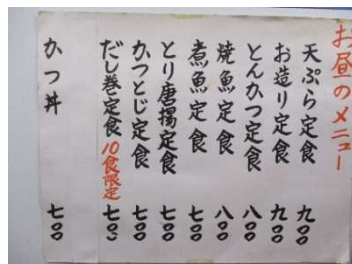 お昼のメニュー
天ぷら定食 九〇〇
お造り定食 九〇〇
とんかつ定食 八〇〇
焼魚定食 八〇〇
煮魚定食 七〇〇
とり唐揚定食 七〇〇
かつとじ定食 七〇〇
だし巻定食 10食限定 七〇〇
かつ丼 七〇〇